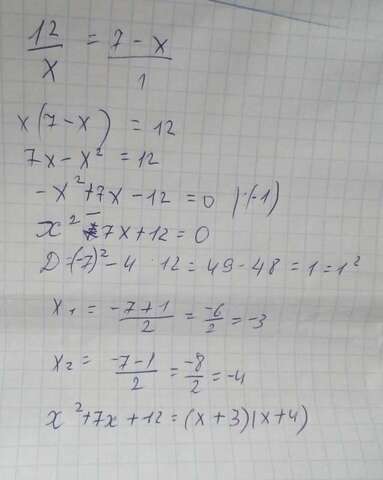 12/x = 7 - x/1
x(7-x) = 12
7x - x² = 12
-x² + 7x - 12 = 0 |·(-1)
x² - 7x + 12 = 0
D = (-7)² - 4 · 12 = 49 - 48 = 1 = 1²
x₁ = -7+1/2 = -6/2 = -3
x₂ = -7-1/2 = -8/2 = -4
x² + 7x + 12 = (x+3)(x+4)